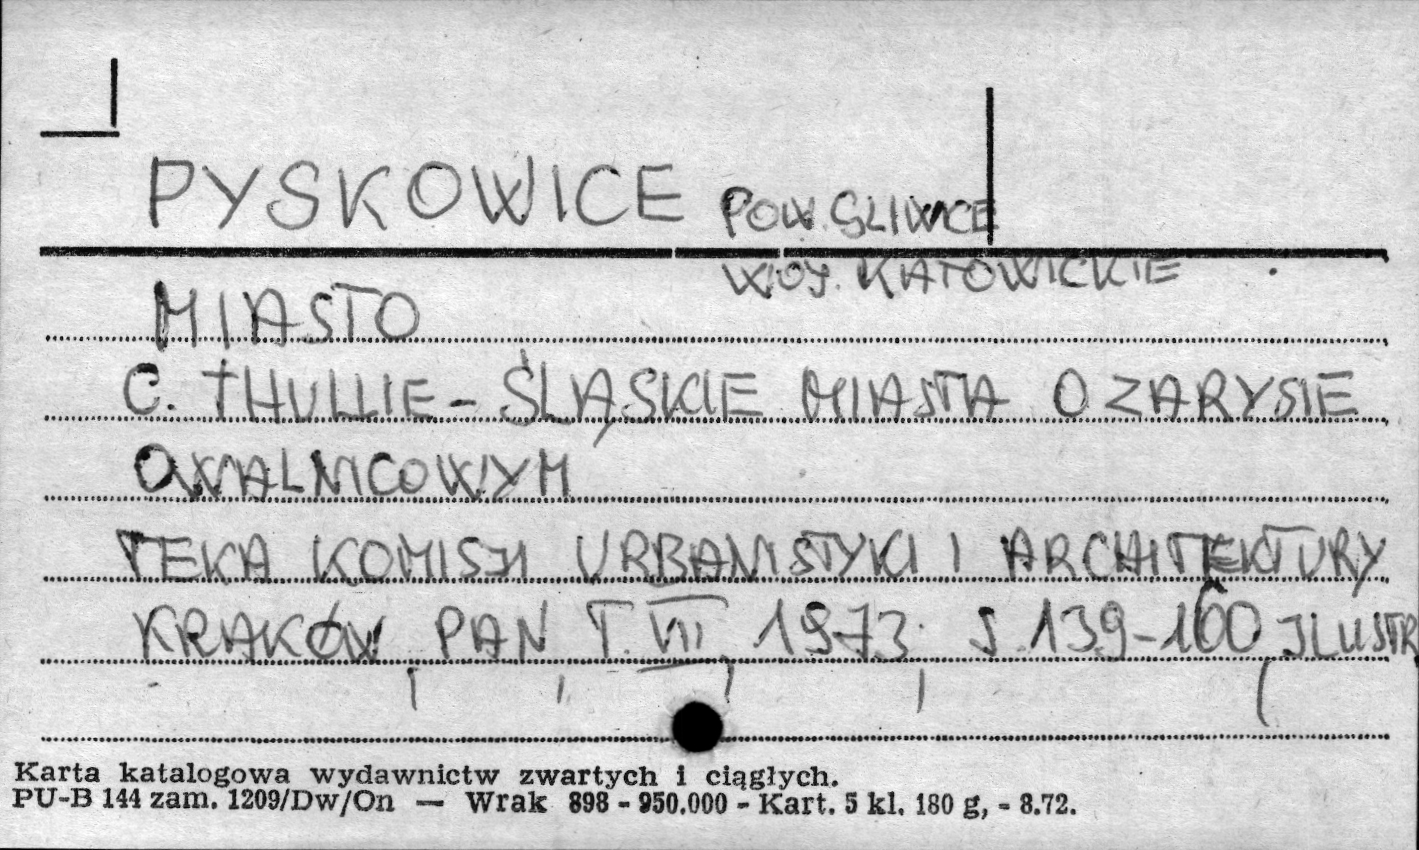 PYSKOWICE POW. GLIWICE
WOJ. KATOWICKIE
MIASTO
C. THULLIE - ŚLĄSKIE MIASTA O ZARYSIE
OWALNICOWYM
TEKA KOMISJI URBANISTYKI I ARCHITEKTURY
KRAKÓW, PAN, T. VII, 1973, S. 139-160, ILUSTR
Karta katalogowa wydawnictw zwartych i ciągłych.
PU-B 144 zam. 1209/Dw/On — Wrak 898 - 950.000 - Kart. 5 kl. 180 g, - 8.72.